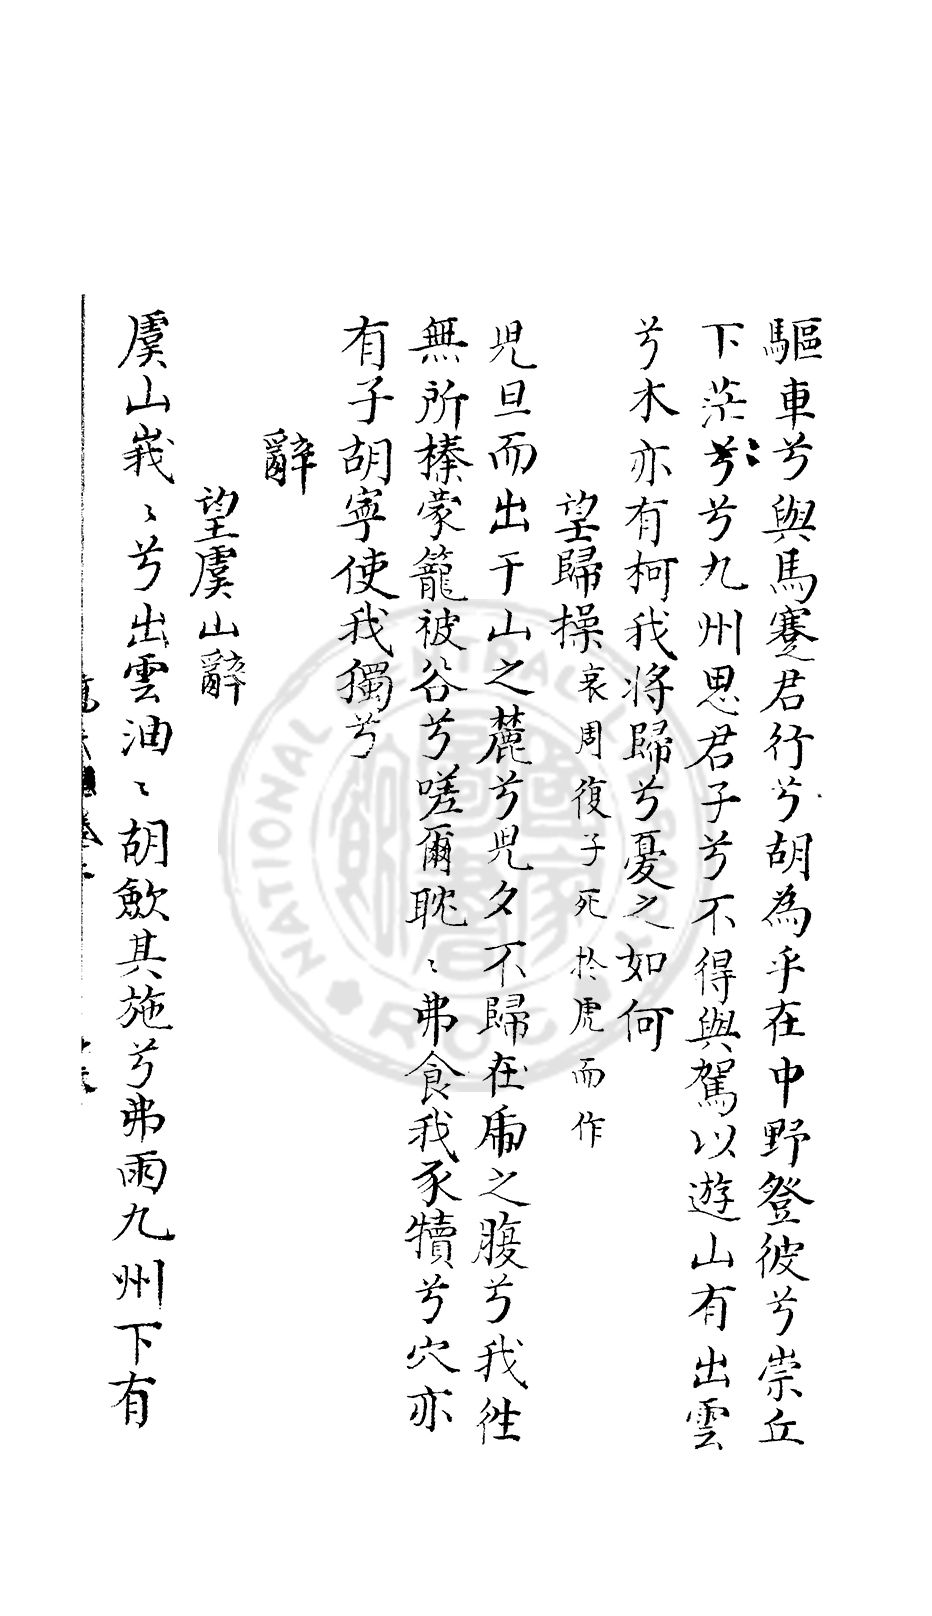 驅車兮與馬蹇君行兮胡為乎在中野登彼兮崇丘
下茫兮〻兮九州思君子兮不得與駕以遊山有出雲
兮木亦有柯我將歸兮憂之如何
望歸操哀周復子死於虎而作
児旦而出于山之麓兮児夕不歸在虎之腹兮我徃
無所榛蒙籠被谷兮嗟爾耽〻弗食我豕犢兮穴亦
有子胡寧使我獨兮
辭
望虞山辭
虞山峩〻兮出雲油〻胡歛其施兮弗雨九州下有
NATIONAL CENTRAL LIBRARY R.O.C.